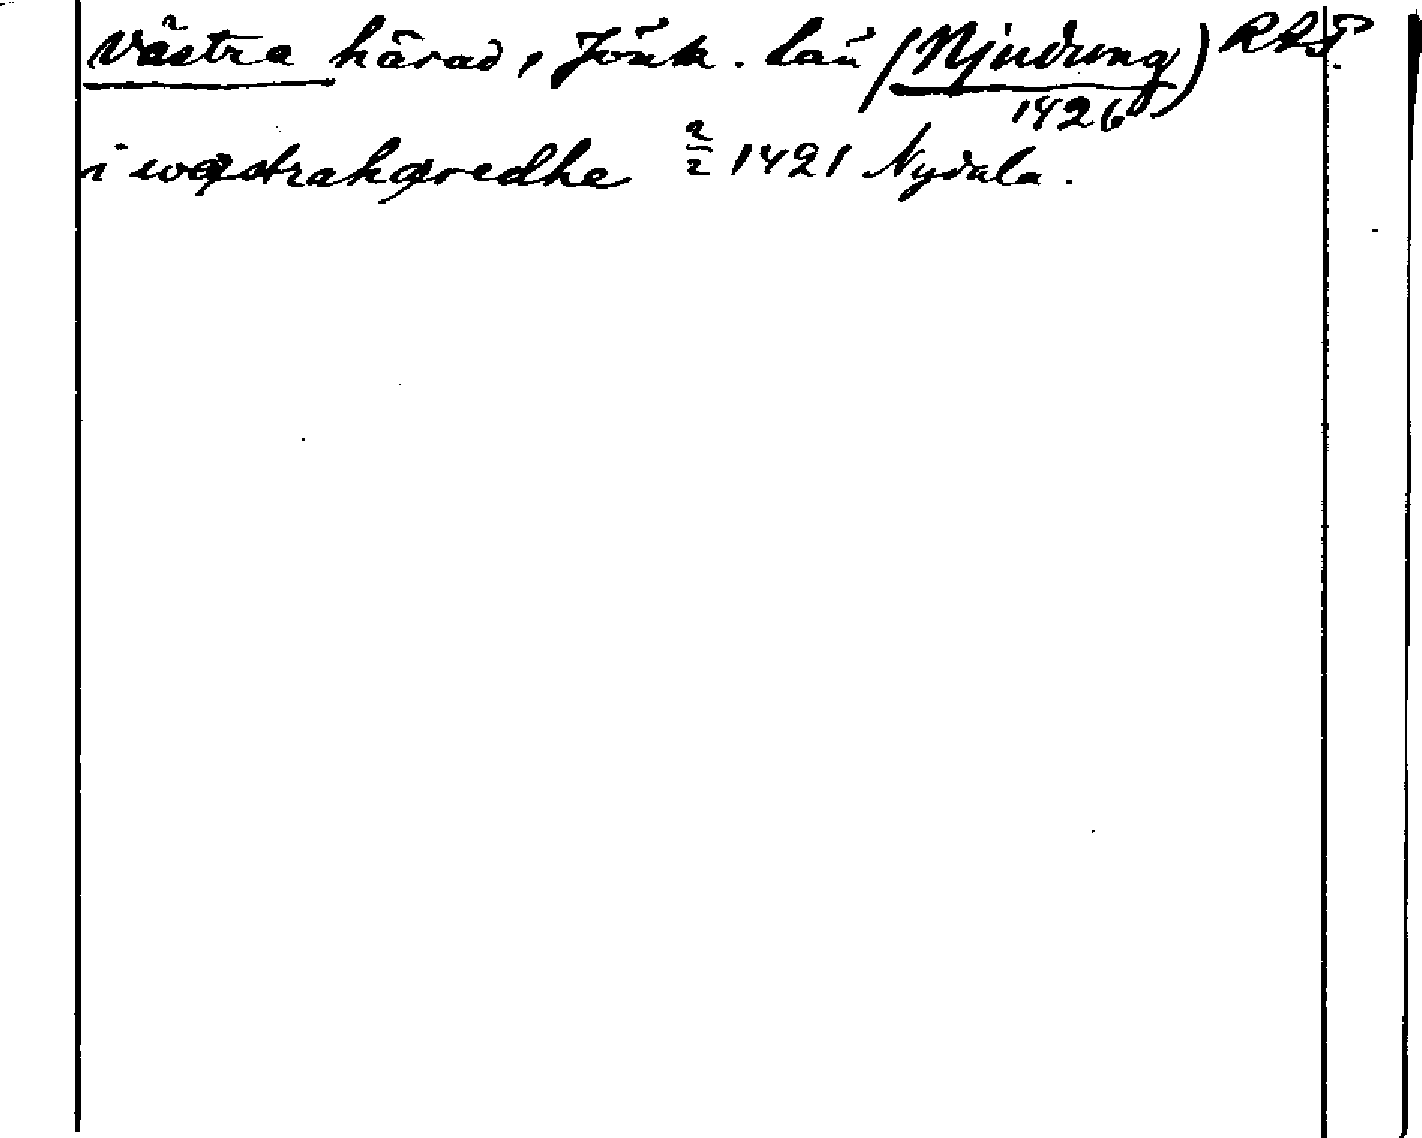 Västra härad, Jönk. län (Njudung) RAP
1426
i wæstrahæredhe 2/2 1421 Nydala.